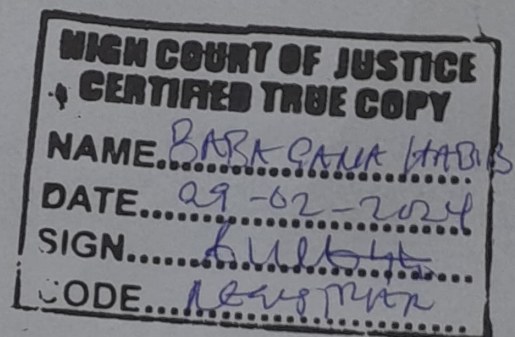 HIGH COURT OF JUSTICE
CERTIFIED TRUE COPY
NAME. BABA GANA HABIB
DATE. 29-02-2024
SIGN.
CODE. REGISTRAR